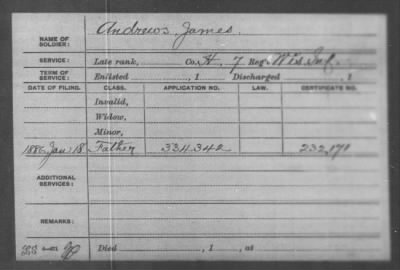 NAME OF SOLDIER: Andrews, James.
SERVICE: Late rank, Co. H, 7 Reg't Wis Inf.
TERM OF SERVICE: Enlisted , 1 Discharged , 1
DATE OF FILING. CLASS. APPLICATION NO. LAW. CERTIFICATE NO.
Invalid,
Widow,
Minor,
1886, Jan. 18 Father 334342 232,171
ADDITIONAL SERVICES:
REMARKS:
Died , 1 , at